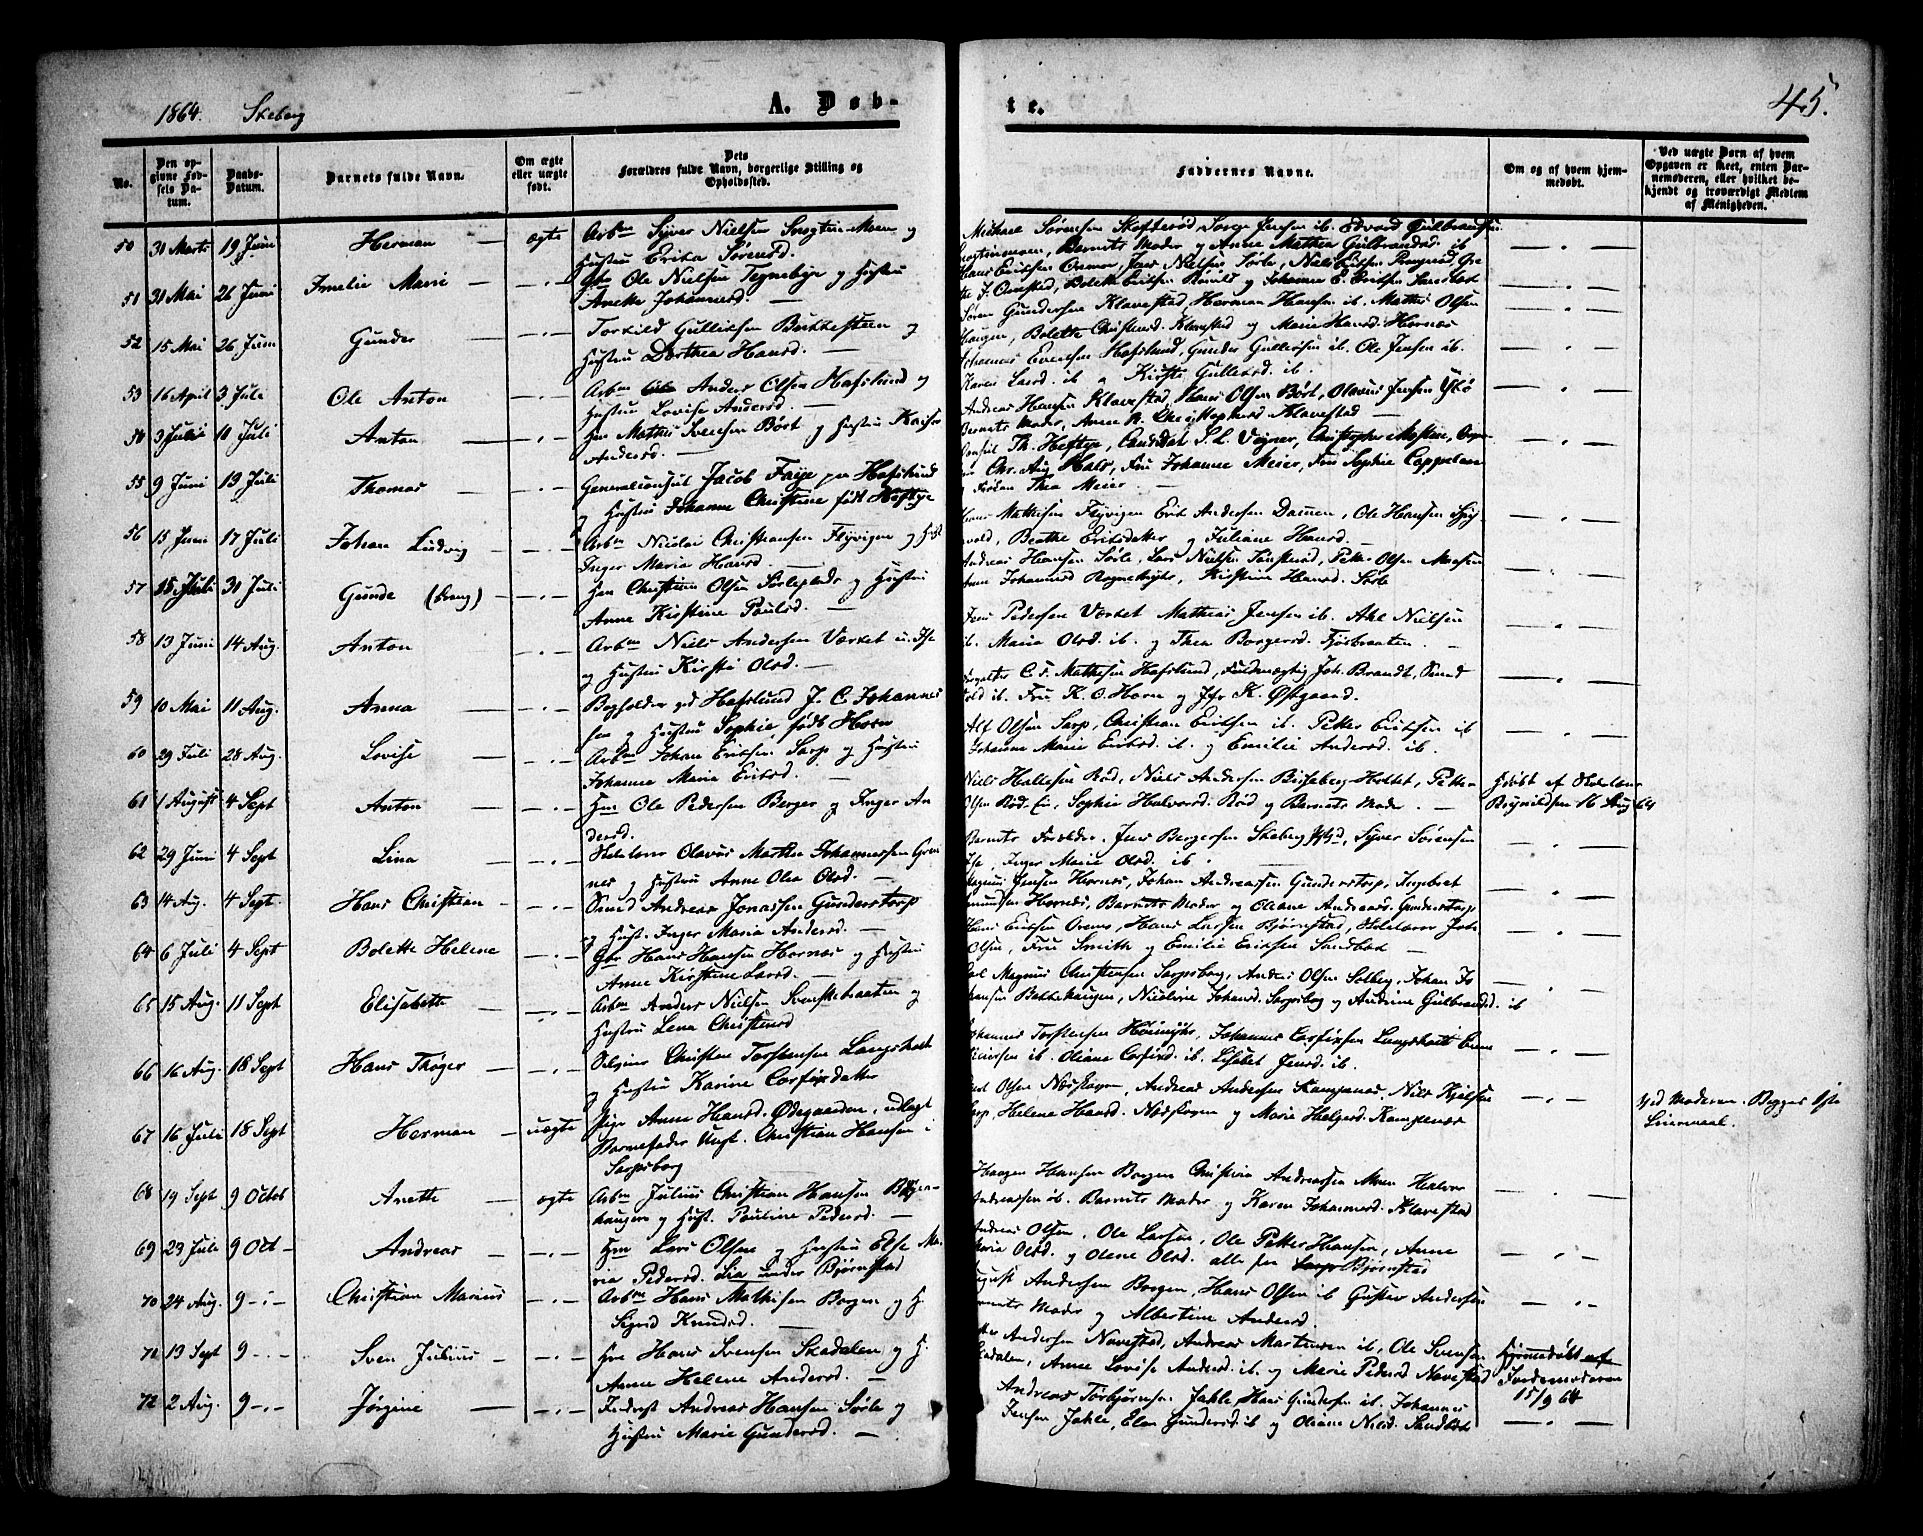 1864. Skeberg
A. Døb-
te.
45.
No.
Den op-
givne Fød-
sels Da-
tum.
Daabs-
Datum.
Barnets fulde Navn.
Om ægte
eller uægte
født.
Dets
Forældres fulde Navn, borgerlige Stilling og
Opholdssted.
Faddernes Navne.
Om og af hvem hjem-
medøbt.
Ved uægte Børn af hvem
Opgaven er skeet, enten Bar-
nemoderen, eller hvilket be-
kjendt og troværdigt Medlem
af Menigheden.
50 31 Marts 19 Juni Herman — ægte Arbm Syver Nielsen Moen og
Hustru Erika Sørensd.
Michael Sørensen Jensen ib. Edvard Gulbrandsen
Barnets Moder og Anne Mathea Gulbrandsd. ib
51 31 Mai 26 Juni Emelie Marie — Gbr Ole Nielsen Tegneby og Hustru
Anette Johannesd. —
Hans Eriksen Jens Nielsen Sørle, Niels Eriksen
Bolette Eriksen og Johanne E. Eriksen Sandbæk
52 15 Mai 26 Juni Gunder — Torkild Gulliksen og
Hustru Dorthea Hansd. —
Søren Gundersen Klavestad, Herman Hansen ib. Mathis Olsen
Haugen, Bolette Christensd. Klavestad og Marie Hansd. Hornæs
53 16 April 3 Juli Ole Anton — Arbm Anders Olsen Hafslund og
Hustru Lovise Andersd. —
Johannes Evensen Hafslund, Gunder Gullersen ib. Ole Jensen ib.
Karen Larsd. ib og Kirsti Gullersd. ib.
54 3 Juli 10 Juli Anton — Hm Mathis Svensen Børt og Hustru
Andersd. —
Andreas Hansen Klavestad, Hans Olsen Børt, Olavus Jensen
Barnets Moder, Anne Klavestad —
55 9 Juni 13 Juli Thomas — Generalconsul Jacob Faye paa Hafslund
og Hustru Johanne Christine født Heftye
Consul Th. Heftye, Candidat S. L. Christopher
Chr. Aug Hals, Fru Johanne Meier, Fru Sophie Cappelen
og Frøken Thea Meier —
56 15 Juni 17 Juli Johan Ludvig — Arbm Nicolai Christiansen Flyvigen og Hust.
Inger Maria Hansd. —
Hans Mathisen Flyvigen Erik Andersen Damen, Ole Hansen
Beathe Eriksdatter og Juliane Hansd. —
57 15 Juli 31 Juli Gunde (Dreng) — Hm Christian Olsen og Hustru
Anne Kirstine Paulsd. —
Andreas Hansen Sørle, Lars Nielsen Petter Olsen
Anne Johannesd. Kirstine Hansd. Sørle
58 13 Juni 14 Aug. Anton — Arbm Niels Andersen Værket u. Ise
og Hustru Kirsti Olsd. —
Fru Pedersen Værket Mathias Jensen ib. Nielsen
ib. Maria Olsd. ib. og Thea Borgersd. Fjosbraaten. —
59 10 Mai 11 Aug. Anna — Bogholder ved Hafslund J. C. Johannes-
sen og Hustru Sophie født Horn
C. F. Mathesen Hafslund, Fuldmægtig Joh. Brandt, Smed
ib. Fru K. O. Horn og Jfr K. Østgaard.
60 29 Juli 28 Aug. Lovise — Arbm Johan Eriksen Sarp og Hustru
Johanne Maria Eriksd. —
Alf Olsen Sarp, Christian Eriksen ib. Petter Eriksen ib
Johanne Marie Eriksd. ib. og Emilie Andersd. ib.
61 1 August 4 Sept Anton — Hm Ole Pedersen Berger og Inger An-
dersd.
Niels Hallesen Rød, Niels Andersen Petter
Olsen Rød, Sophie Halvorsd. Rød og Barnets Moder. —
Hdøbt af Skolelærer
Brynildsen 16 Aug 64
62 29 Juni 4 Sept Lina — Skolelærer Olavus Marthin Johannessen
og Hustru Anne Olea Olsd. —
Barnets Forældre, Jens Borgersen Skeberg Syver Sørensen
Ise, Inger Marie Olsd. ib. —
63 14 Aug. 4 Sept. Hans Christian — Smed Andreas Jonassen Gunderstorp
og Hust. Inger Maria Andersd. —
Magnus Jensen Hornæs, Johan Andreassen Gunderstorp,
Hornæs, Barnets Moder og Oliane Andreasd. Gunderstorp
64 6 Juli 4 Sept Bolette Helene — Gbr Hans Hansen Hornæs og Hustru
Anne Kirstine Larsd. —
Hans Eriksen Hans Larsen Bjørnstad,
Olsen, Fru Smith og Emilie Eriksen Sandbæk —
65 15 Aug. 11 Sept Elisabeth — Arbm Anders Nielsen Svenskebraaten og
Hustru Lena Christensd
Carl Magnus Christensen Sarpsborg, Anders Olsen Solberg, Johan Jo-
hansen Battehaugen, Nicoline Johansd. Sarpsborg og Andrine Gulbrandsd. ib
66 16 Aug. 18 Sept Hans Thøger — Selveier Christen Torstensen Langsholt
og Hustru Karine Corfixdatter
Johannes Torstensen Johannes Corfixsen Langsholt
ib. Oliane Corfixd. ib. Lisabet Jensd. ib.
67 16 Juli 18 Sept Herman — uægte Pige Anne Hansd. Ødegaarden, udlagt
Barnefader Ungk. Christian Hansen i
Sarpsborg
Olsen Næsskogen, Andreas Andersen Kampenæs, Niels Kjølsen
Helene Hansd. Næsskogen og Marie Helgesd. Kampenæs
Ved Moderen. Begges 1ste
Leiermaal.
68 19 Sept 9 Octob Anette — ægte Arbm Julius Christian Hansen
haugen og Hust. Pauline Pedersd. —
Haagen Hansen Borgen Christian Andreassen Moen Halvor
Andreassen ib. Barnets Moder og Karen Johannesd. Klavestad
69 23 Juli 9 Oct — Andreas — Hm Lars Olsen og Hustru Else Ma-
ria Pedersd. Lia under Bjørnstad
Andreas Olsen, Ole Larsen, Ole Petter Hansen, Anne
Maria Olsd. og Olene Olsd. alle fra Bjørnstad
70 24 Aug. 9 — Christian Marius — Arbm Hans Mathisen Borgen og H.
Sigrid Knudsd. —
August Andersen Borgen, Hans Olsen ib Gustav Andersen
Barnets Moder og Albertine Andersd.
71 13 Sept 9 — Sven Julius — Hm Hans Svensen Skadalen og H.
Anne Helene Andersd. —
Andersen Navestad, Andreas Martinsen ib., Ole Svensen
Skadalen, Anne Lovise Andersd. ib. og Marie Pedersd Navestad
hjemmedøbt af
Jordemoderen
15/9 64
72 2 Aug. 9 — Jørgine — Inderst Andreas Hansen Sørle og
Hustru Marie Gundersd. —
Andreas Torbjørnsen Jahle, Hans Gundersen ib. Johannes
Jensen Jahle, Elen Gundersd. ib og Oliane Nilsd. Sandbæk